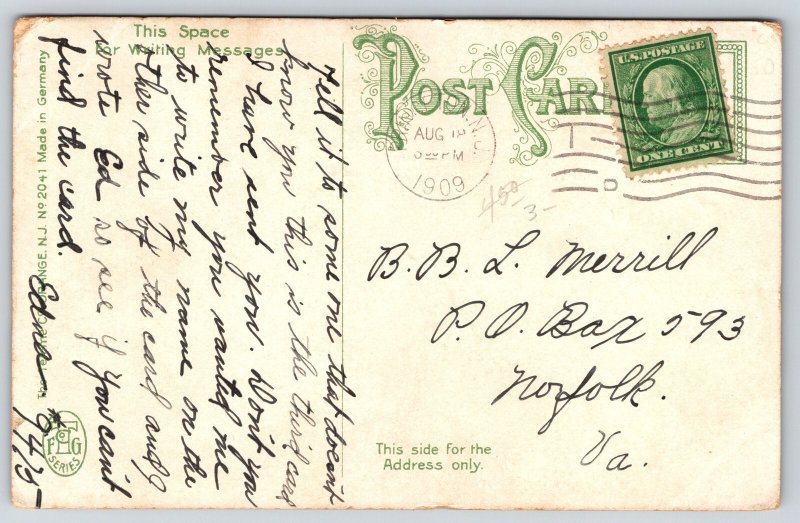 This Space
For Writing Messages
POST CARD
U.S. POSTAGE
ONE CENT
AUG
PM
1909
450
3-
Tell it to some one that doesn't
know you this is the third card
I have sent you. Don't you
remember you wanted me
to write my name on the
other side of the card and I
wrote Ed so see if you can't
find the card.
Edna
B. B. L. Merrill
P. O. Box 593
Norfolk.
Va.
This side for the
Address only.
ORANGE, N.J. No 2041 Made in Germany
F G
SERIES